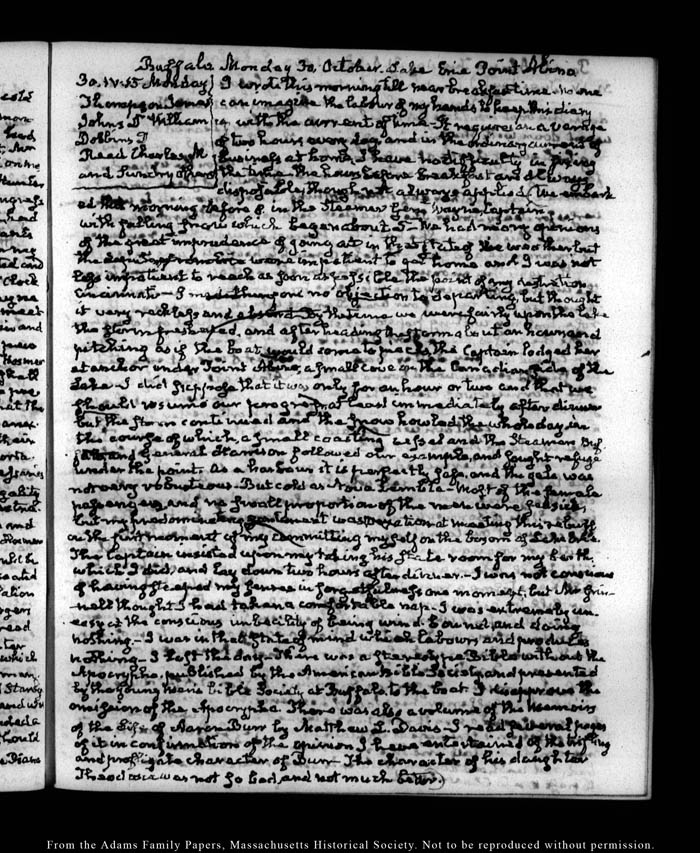 Buffalo Monday 30. October. Lake Erie Point Abino
30. IV:55 Monday I wrote this morning till near breakfast time. No one
Thompson James can imagine the labour of my hands to keep this diary
Johns J William up with the current of time. It requires on a average
Dobbins J of two hours every day and in the ordinary current of
Read Charles M business at home, I have no difficulty in fixing
and Sundry others the time. The hours before breakfast and always
disposable though not always applied. We embark
ed this morning before 9. in the Steamer Gen. Wayne, Captain
with falling snow which began about 7 — We had many opinions
of the great imprudence of going out in this state of the weather but
the were impatient to get home and I was not
less impatient to reach as soon as possible the point of my destination
Cincinnati — I made therefore no objection to departing, but thought
it very reckless and absurd. By the time we were fairly upon the lake
the storm freshened, and after heading the storm about an hour and
pitching as if the boat would come to pieces, the Captain lodged her
at anchor under Point Abino, a small cove on the Canadian side of the
Lake — I did suppose that it was only for an hour or two and that we
should resume our progress at least immediately after dinner
but the storm continued and the snow howled the whole day in
the course of which, a small coasting vessel and the Steamers Buf-
falo and General Harrison followed our example, and sought refuge
under the point. As a harbour it is perfectly safe, and the gale was
not very boisterous. But cold as Nova Zembla. Most of the female
passengers, and no small proportion of the men were seasick,
but my predominating sentiment was vexation at meeting this rebuff
on the first moment of my committing myself on the bosom of Lake Erie.
The Captain insisted upon my taking his state room for my berth
which I did, and lay down two hours after dinner. — I was not conscious
of having steeped my senses in forgetfulness one moment, but Mr Grin-
nell thought I had taken a comfortable nap. I was extremely un-
easy at the conscious imbecility of being wind-bound and doing
nothing. — I was in that state of mind which labours and produces
nothing — I lost the day. There was a stereotype Bible without the
Apocrypha, published by the American Bible Society and presented
by the young men's bible Society at Buffalo, to the boat. I disapprove the
omission of the Apocrypha. There was also a volume of the Memoirs
of the life of Aaron Burr by Matthew L. Davis — I read several pages
of it in confirmation of the opinion I have entertained of the trifling
and profligate character of Burr. The character of his daughter
Theodosia was not so bad, and not much better.
From the Adams Family Papers, Massachusetts Historical Society. Not to be reproduced without permission.